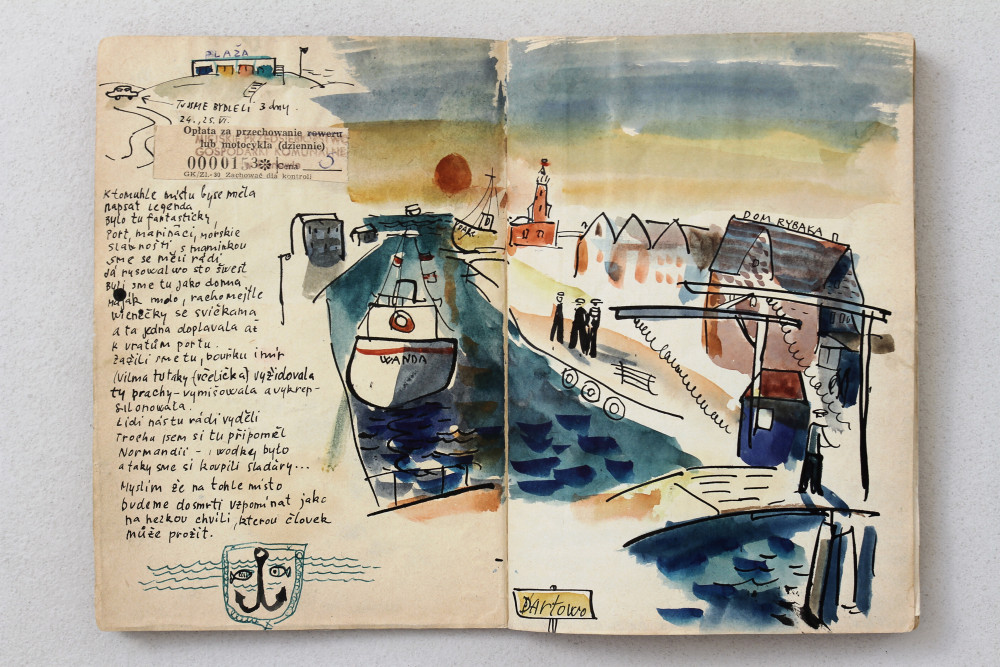 PLAŽA
TU JSME BYDLELI 3 dny.
24., 25. VI.
Opłata za przechowanie roweru
lub motocykla (dziennie)
MIEJSKIE PRZEDSIĘBIORSTWO
GOSPODARKI KOMUNALNE
000015
GK/ZL-30 Zachować dla kontroli
K tomuhle místu by se měla
napsat legenda
Bylo tu fantasticky,
Port, marináci, mořské
slavnosti, s maminkou
sme se měli rádi
Já rysoval wo sto šwest
Byli sme tu jako doma
Maják mdo, racho mejtle
Wienečky se svíčkama
a ta jedna doplavala až
k vratům portu.
Zažili sme tu, bouřku i mír
(Vilma tu taky (včelička) vyžidovala
ty prachy - vymišovala a vykrep-
silonovala.
Lidi nás tu rádi vyděli
Trochu jsem si tu připoměl
Normandii - i wodkey bylo
a taky sme si koupili sladáry...
Myslim že na tohle místo
budeme dosmrti vzpomínat jako
na hezkou chvíli, kterou človek
může prožít.
DARŁ
WANDA
DOM RYBAKA
Darłowo